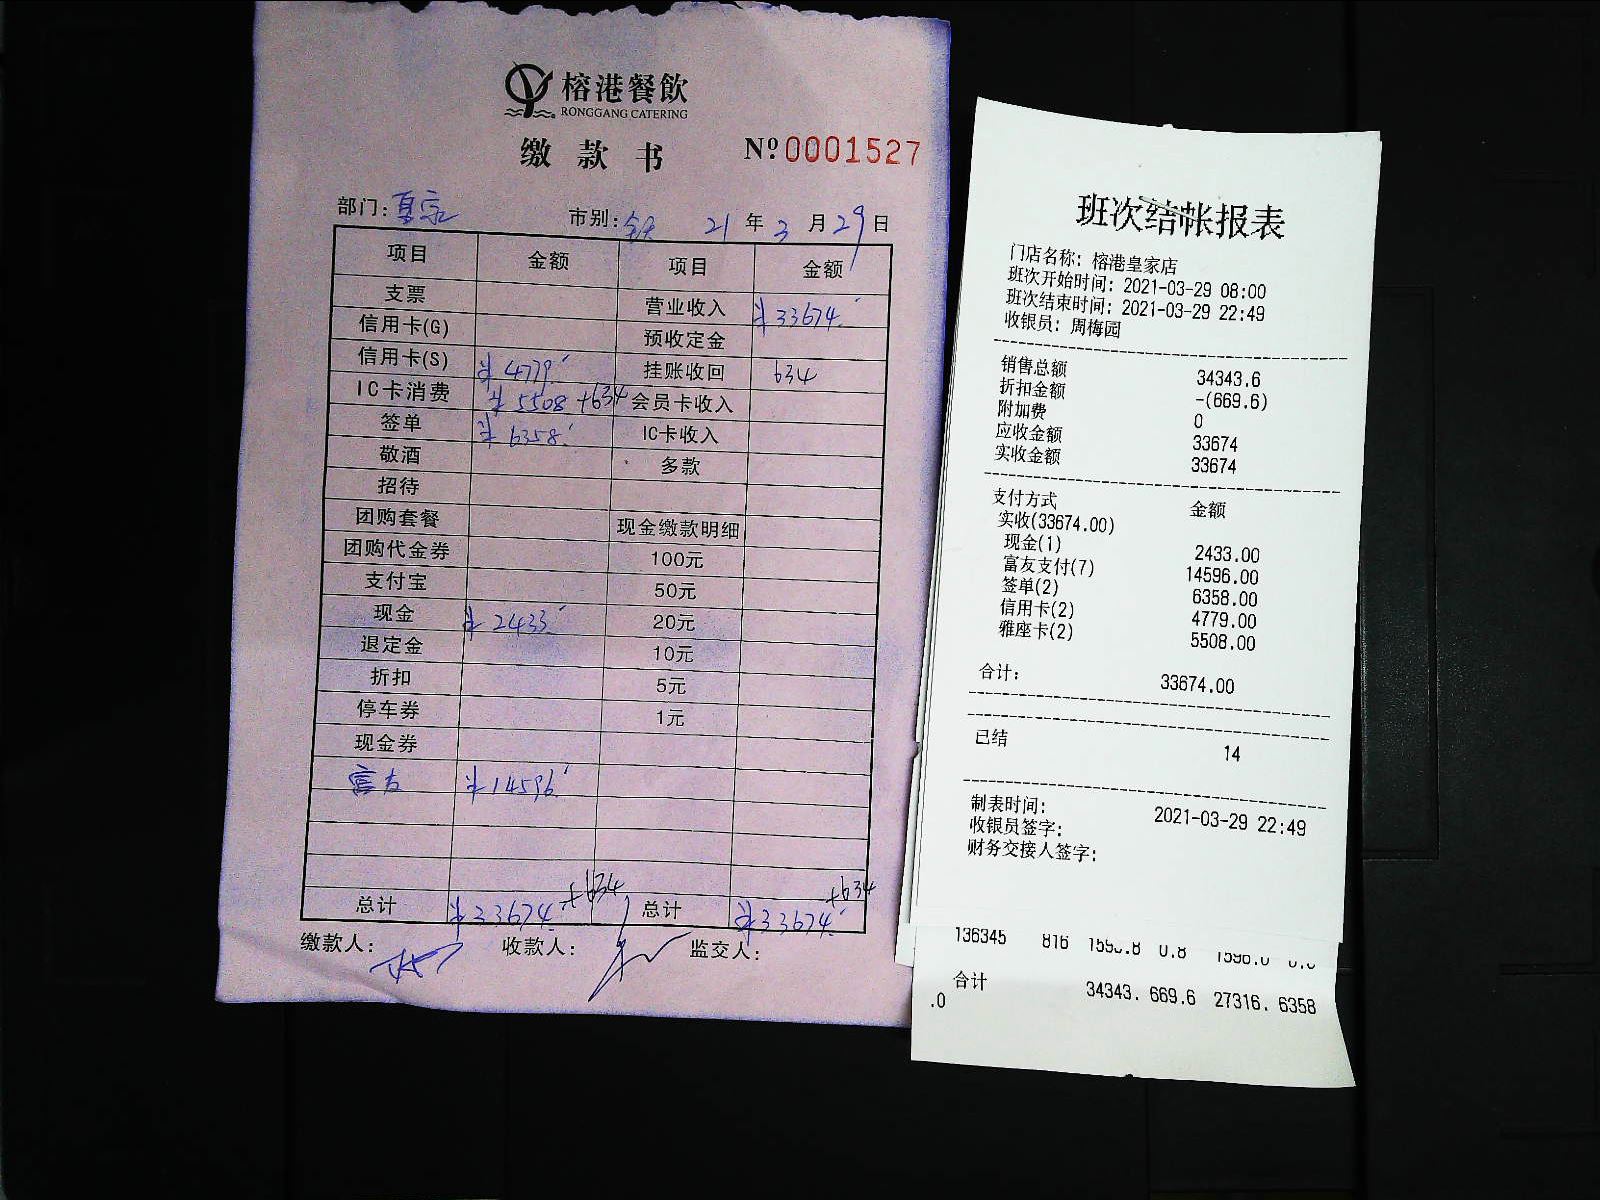 榕港餐飲
RONGGANG CATERING
缴款书 №0001527
部门: 皇家 市别: 全天 21年3月29日
项目 金额 项目 金额
支票 营业收入 ¥33674.
信用卡(G) 预收定金
信用卡(S) ¥4779. 挂账收回 634
IC卡消费 ¥5508 +634 会员卡收入
签单 ¥6358. IC卡收入
敬酒 多款
招待
团购套餐 现金缴款明细
团购代金券 100元
支付宝 50元
现金 ¥2433. 20元
退定金 10元
折扣 5元
停车券 1元
现金券
富友 ¥14596
总计 ¥33674. +634 总计 ¥33674. +634
缴款人: 收款人: 监交人:
班次结帐报表
门店名称: 榕港皇家店
班次开始时间: 2021-03-29 08:00
班次结束时间: 2021-03-29 22:49
收银员: 周梅园
销售总额 34343.6
折扣金额 -(669.6)
附加费 0
应收金额 33674
实收金额 33674
支付方式 金额
实收(33674.00)
现金(1) 2433.00
富友支付(7) 14596.00
签单(2) 6358.00
信用卡(2) 4779.00
雅座卡(2) 5508.00
合计: 33674.00
已结 14
制表时间: 2021-03-29 22:49
收银员签字:
财务交接人签字:
136345 816 0.8
合计 34343. 669.6 27316. 6358
.0